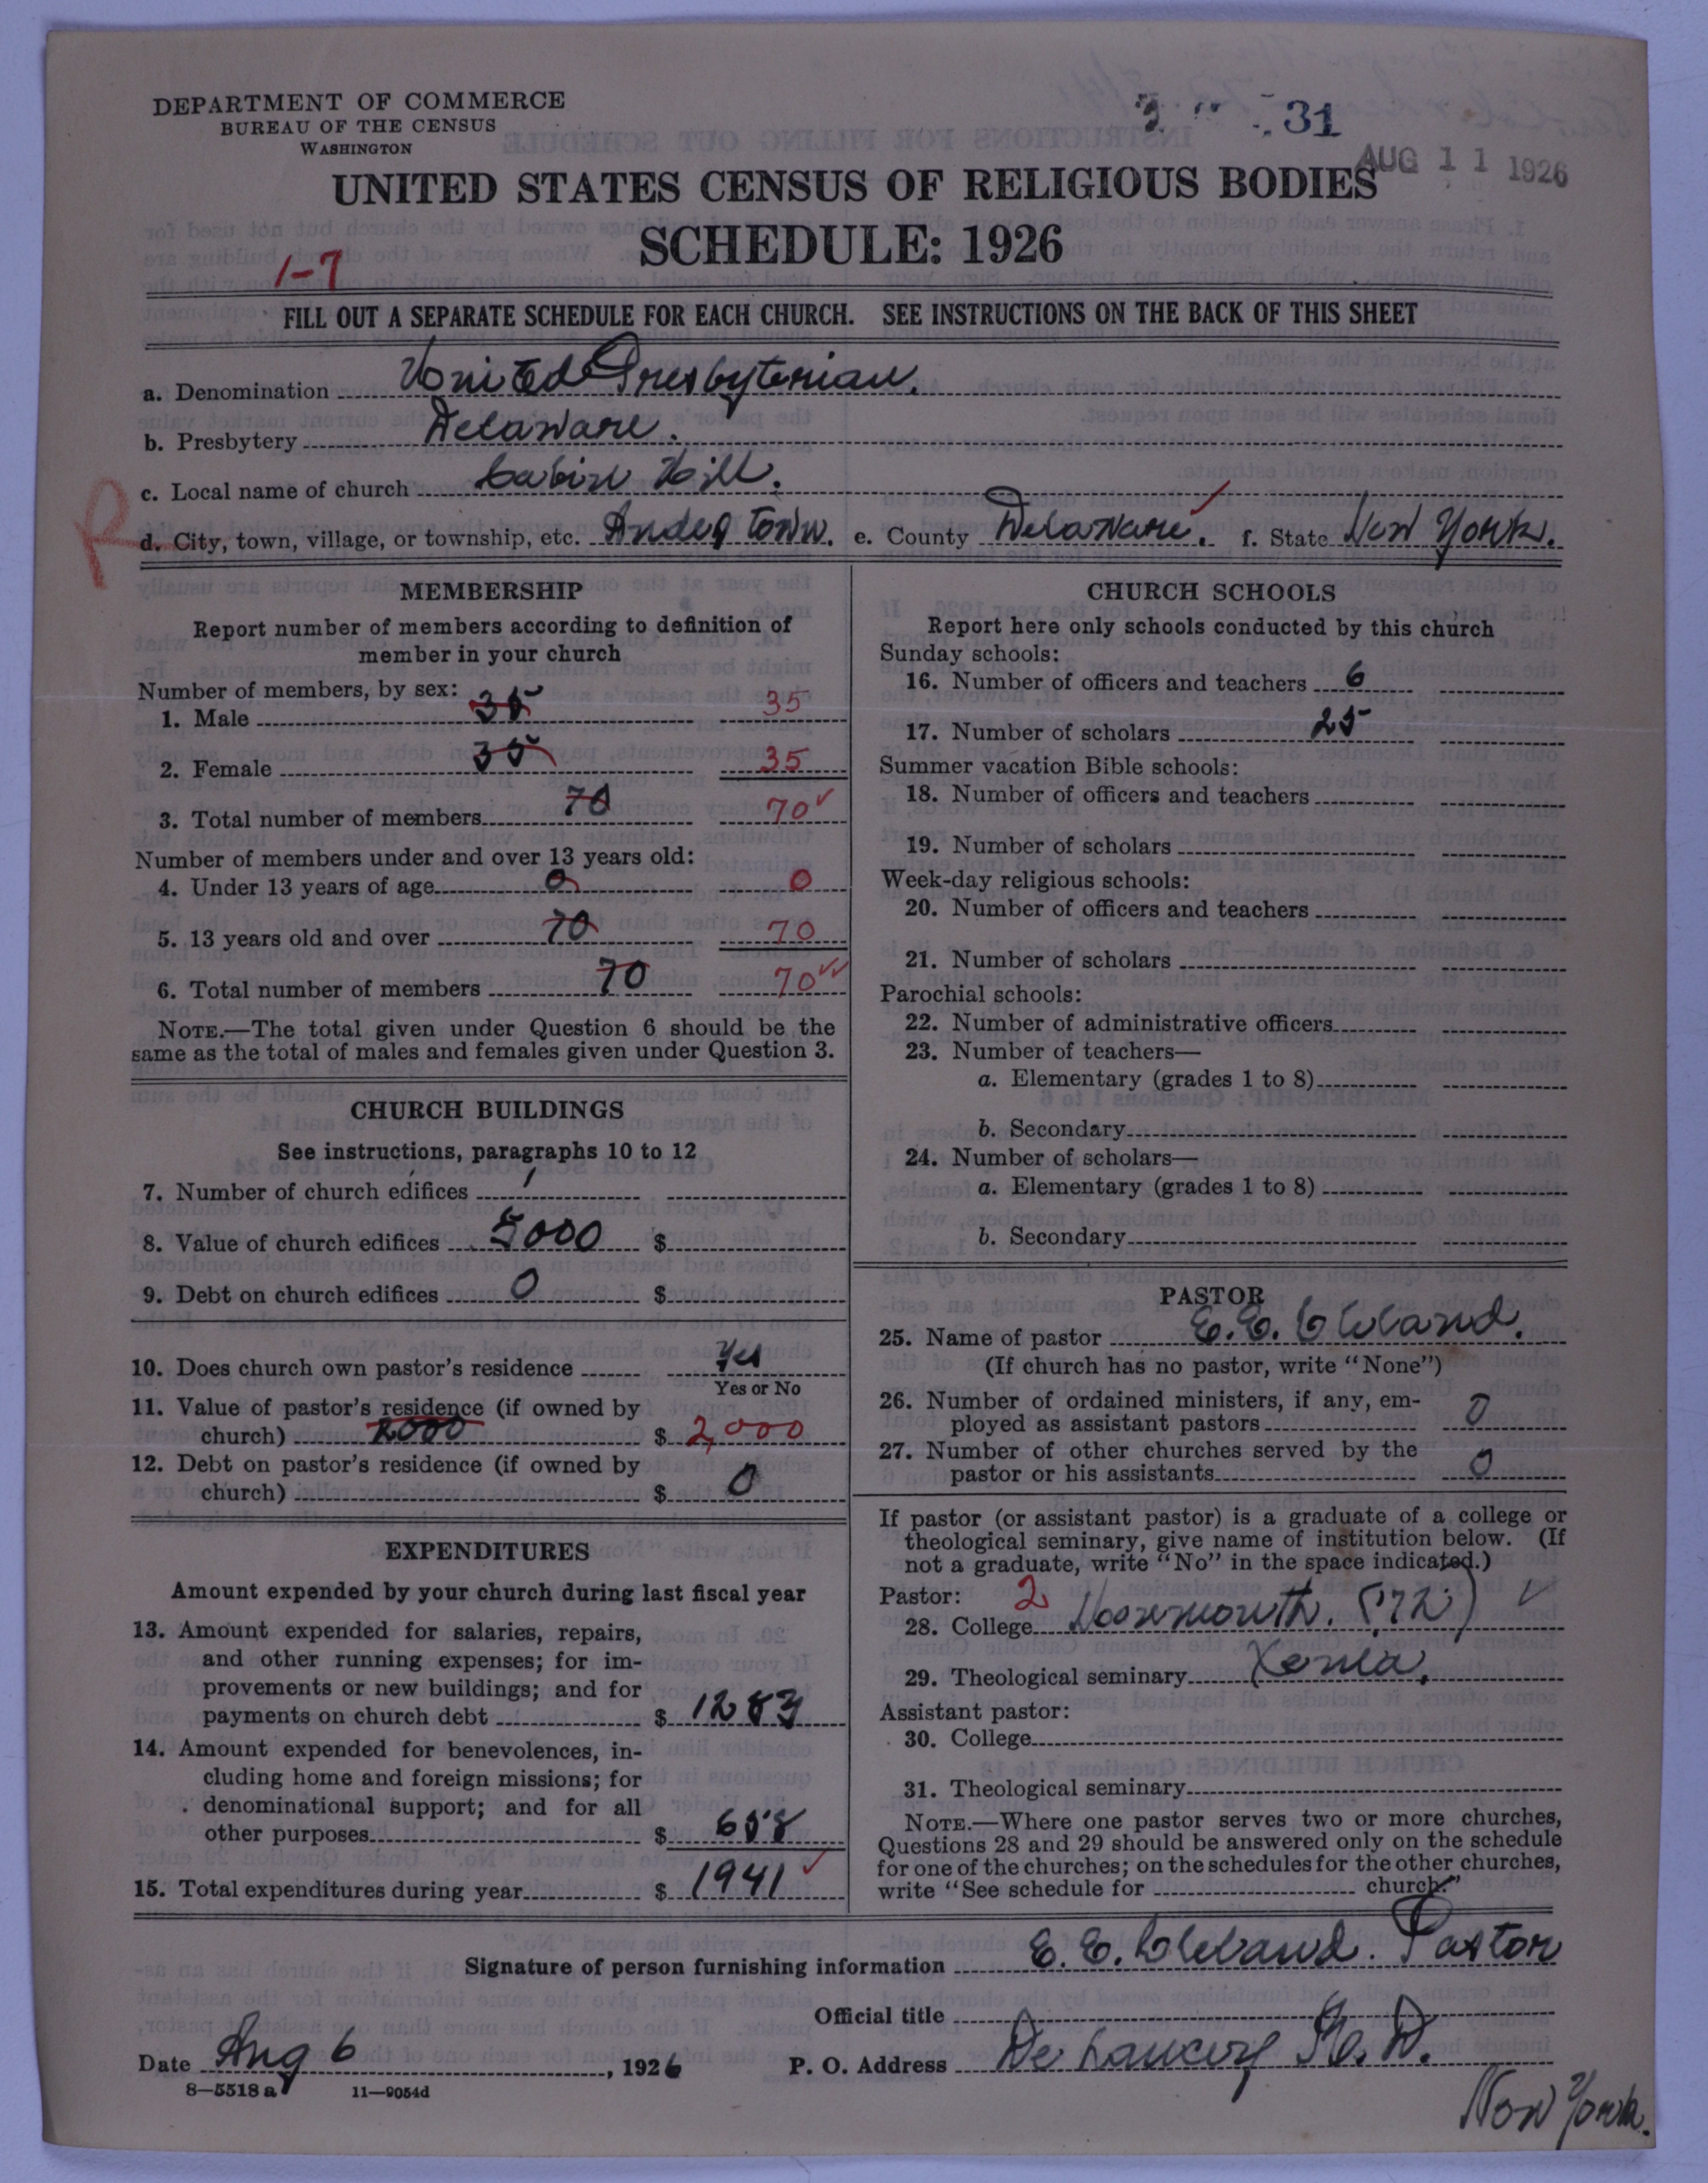 DEPARTMENT OF COMMERCE
BUREAU OF THE CENSUS
WASHINGTON
31
AUG 11 1926
UNITED STATES CENSUS OF RELIGIOUS BODIES
SCHEDULE: 1926
1-7
FILL OUT A SEPARATE SCHEDULE FOR EACH CHURCH. SEE INSTRUCTIONS ON THE BACK OF THIS SHEET
a. Denomination United Presbyterian.
b. Presbytery Delaware.
c. Local name of church Cabin Hill.
R
d. City, town, village, or township, etc. Andes Town. e. County Delaware. f. State New York.
MEMBERSHIP
Report number of members according to definition of
member in your church
Number of members, by sex:
1. Male 35 35
2. Female 35 35
3. Total number of members 70 70✓
Number of members under and over 13 years old:
4. Under 13 years of age 0 0
5. 13 years old and over 70 70
6. Total number of members 70 70✓✓
NOTE.—The total given under Question 6 should be the
same as the total of males and females given under Question 3.
CHURCH BUILDINGS
See instructions, paragraphs 10 to 12
7. Number of church edifices 1
8. Value of church edifices 5000 $
9. Debt on church edifices 0 $
10. Does church own pastor's residence Yes
Yes or No
11. Value of pastor's residence (if owned by
church) 2000 $ 2,000
12. Debt on pastor's residence (if owned by
church) $ 0
EXPENDITURES
Amount expended by your church during last fiscal year
13. Amount expended for salaries, repairs,
and other running expenses; for im-
provements or new buildings; and for
payments on church debt $ 1283
14. Amount expended for benevolences, in-
cluding home and foreign missions; for
denominational support; and for all
other purposes $ 658
15. Total expenditures during year $ 1941 ✓
CHURCH SCHOOLS
Report here only schools conducted by this church
Sunday schools:
16. Number of officers and teachers 6
17. Number of scholars 25
Summer vacation Bible schools:
18. Number of officers and teachers
19. Number of scholars
Week-day religious schools:
20. Number of officers and teachers
21. Number of scholars
Parochial schools:
22. Number of administrative officers
23. Number of teachers—
a. Elementary (grades 1 to 8)
b. Secondary
24. Number of scholars—
a. Elementary (grades 1 to 8)
b. Secondary
PASTOR
25. Name of pastor E. E. Cleland.
(If church has no pastor, write "None")
26. Number of ordained ministers, if any, em-
ployed as assistant pastors 0
27. Number of other churches served by the
pastor or his assistants 0
If pastor (or assistant pastor) is a graduate of a college or
theological seminary, give name of institution below. (If
not a graduate, write "No" in the space indicated.)
Pastor: 2
28. College Monmouth. ✓
29. Theological seminary Xenia.
Assistant pastor:
30. College
31. Theological seminary
NOTE.—Where one pastor serves two or more churches,
Questions 28 and 29 should be answered only on the schedule
for one of the churches; on the schedules for the other churches,
write "See schedule for church."
Signature of person furnishing information E. E. Cleland. Pastor
Official title
Date Aug 6, 1926 P. O. Address De Lancey
New York.
8—5518 a 11—9054d